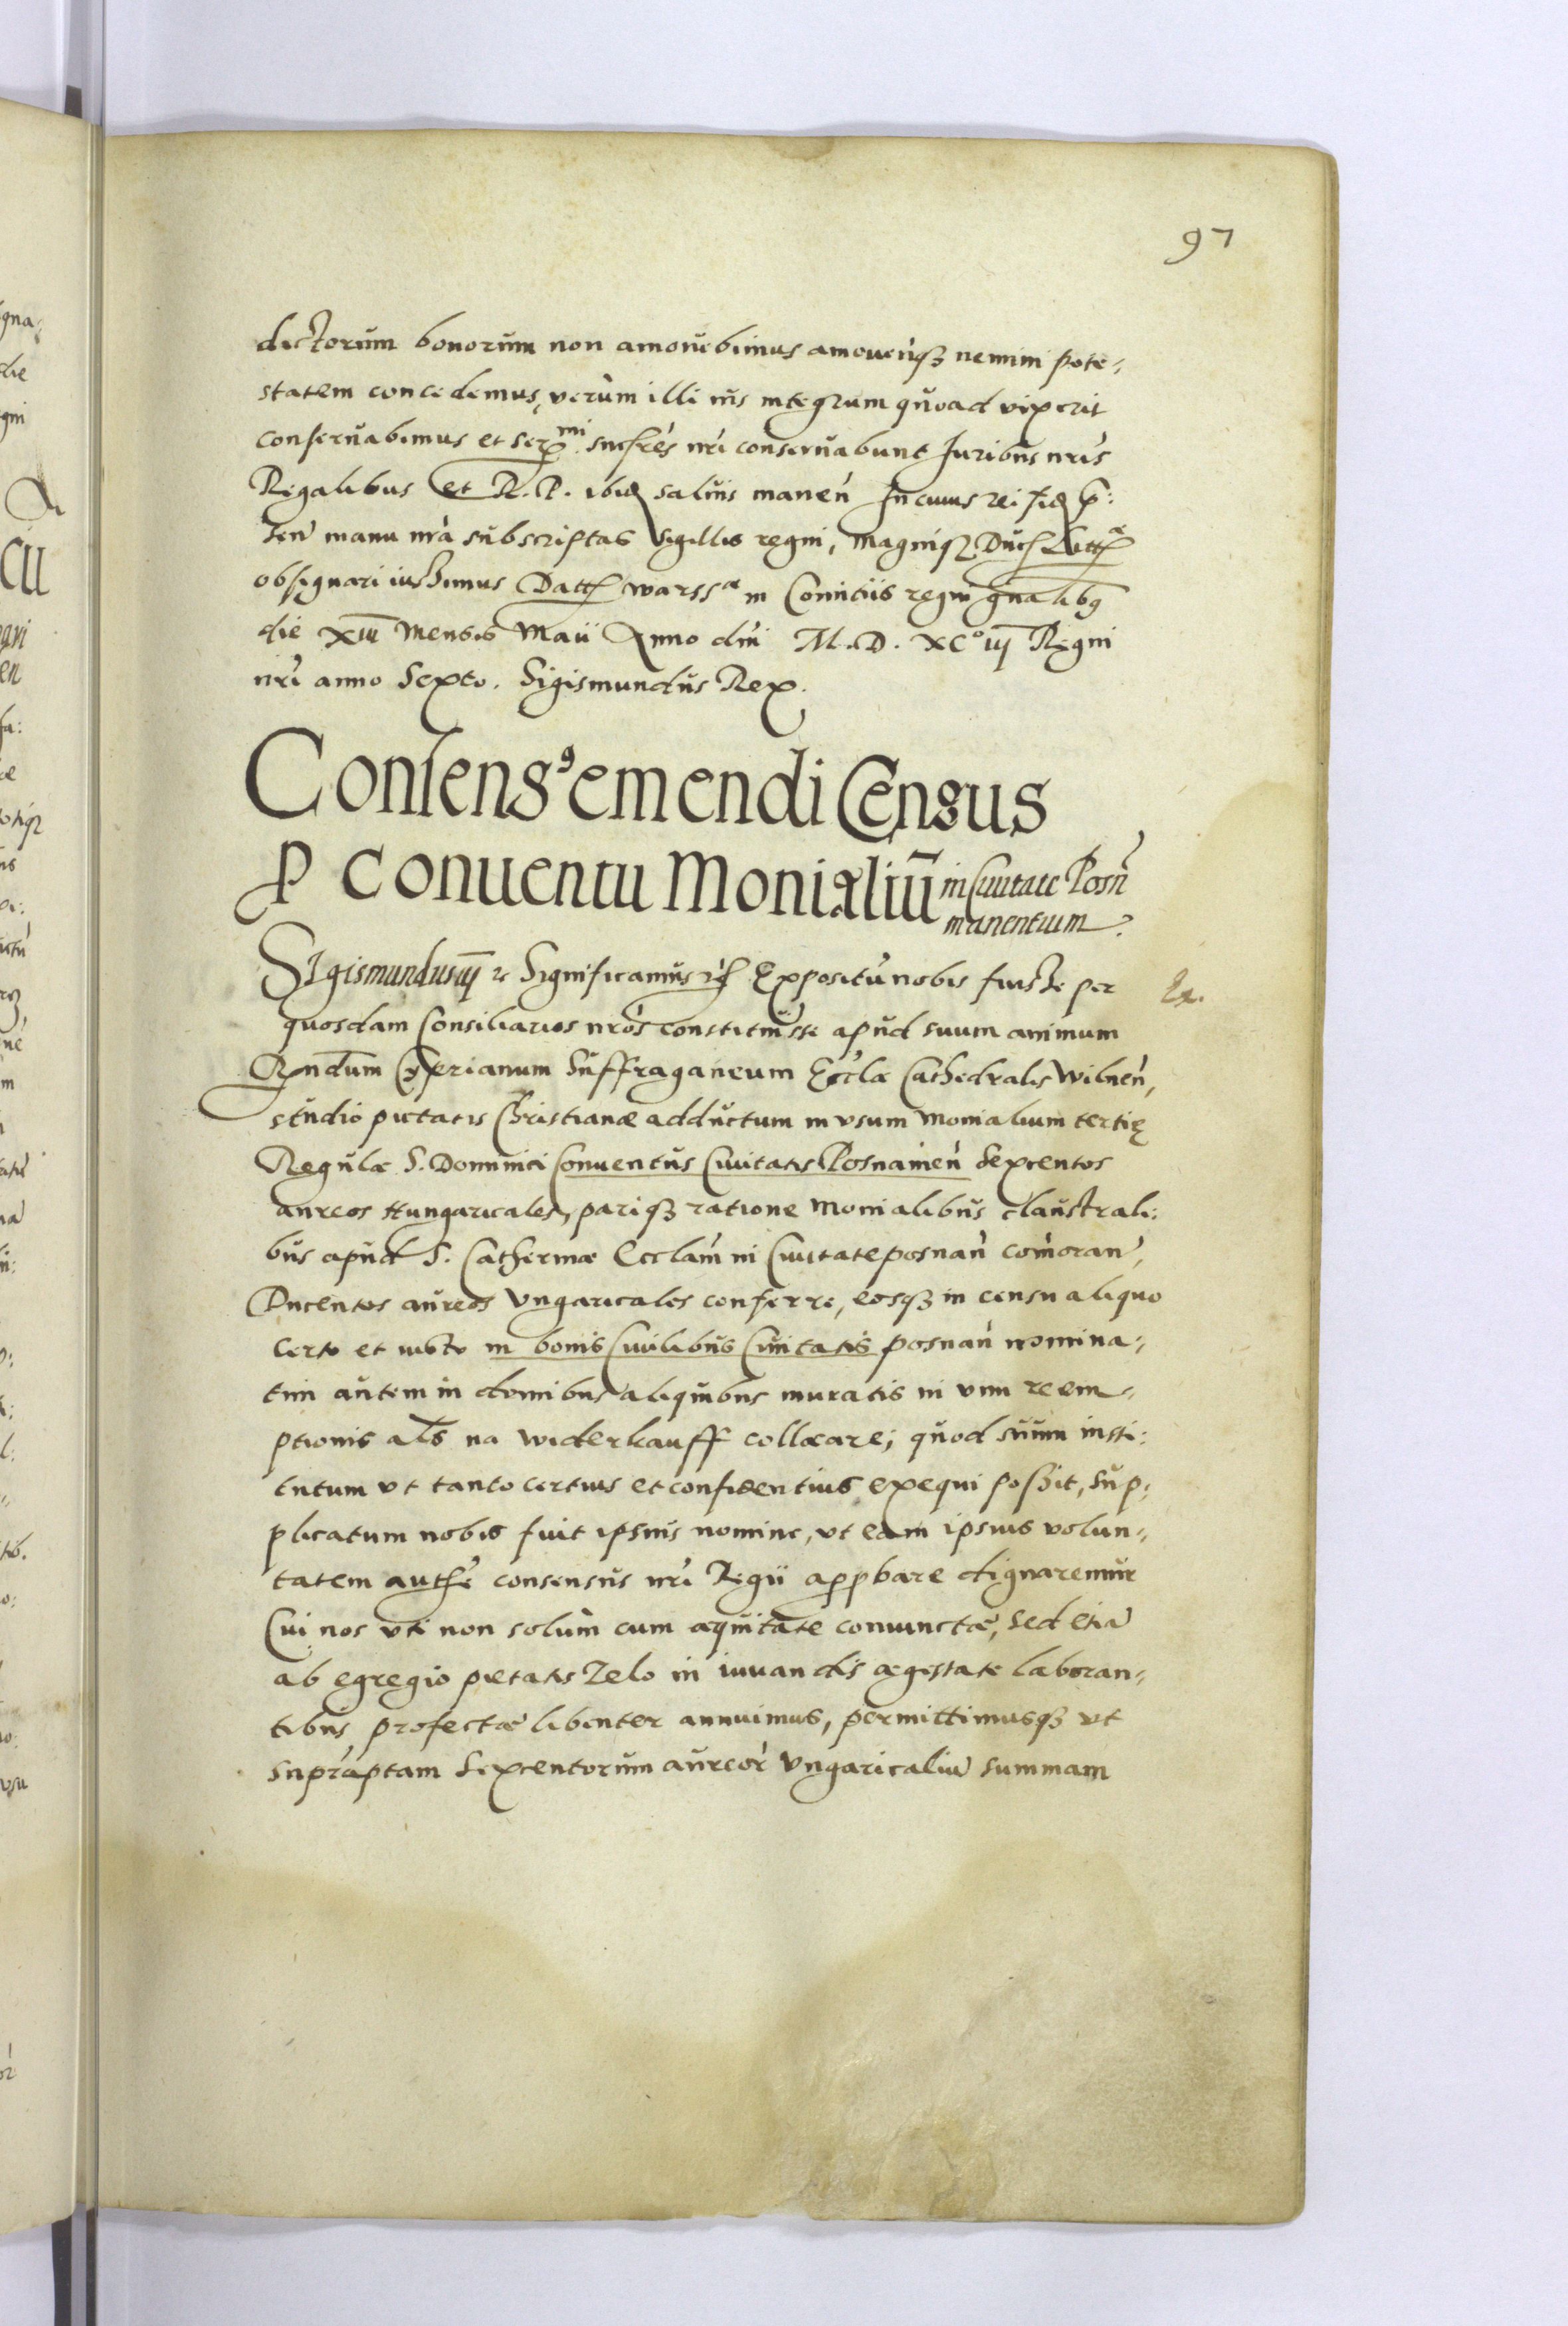 97
dictorum bonorum non amouebimus amouenq̃ʒ nemini pote-
statem concedemus, verùm illi ius integrum quoad vixerit
conseruabimus et Ser^mi. succres nrĩ conseruabunt Juribus nrĩs
Regalibus et R. P. ibidẽ saluis manen̄ In cuius rei fidẽ p̃:
sen̄ manu nrã subscriptas Sigillis regni, magniqʒ Duc̃ Litt^æ
obsignari iussimus Datt̃ warss^æ in Comitiis regni gñalibꝯ
die XIII Mensis Maii Anno dñi M. D. XC° iij Regni
nrĩ anno Sexto. Sigismundus Rex.
Consensꝯ emendi Census
P Conuentu Monialiū in Ciuitate Posn̄
manentium.
Sigismundus iij ꝛc Significamus ꝛc̃ Expositū nobis fuisse per
Ex.
quosdam Consiliarios nrõs constituisse apud suum animum
Rndum Cyprianum Suffraganeum Eccl̃æ Cathedralis Wilnen̄,
studio pietatis Christianæ adductum in vsum Monialium tertię
Regulæ S. Dominici Conuentus Ciuitatis Posnanien̄ Sexcentos
aureos Hungaricales, pariqʒ ratione Monialibus claustrali:
bus apud S. Catherinæ Ecclãm in Ciuitate posnan̄ com̃oran̄,
Ducentos aureos Vngaricales conferre, eosqʒ in censu aliquo
certo et iusto in bonis Ciuilibus Ciuitatis posnan̄ nomina-
tim autem in domibus aliquibus muratis in vim reem-
ptionis al̃s na widerkauff collocare; quod suum insti:
tutum vt tanto certius et confidentius exequi possit, sup-
plicatum nobis fuit ipsius nomine, vt eam ipsius volun-
tatem auth̃e consensus nrĩ Regii app̲bare dignaremur
Cui nos vti non solùm cum æquitate coniunctæ, sed etiã
ab egregio pietatis Zelo in iuuandis ægestate laboran-
tibus profectæ libenter annuimus, permittimusqʒ vt
suprãptam Sexcentorum aureor̃ Vngaricaliū summam